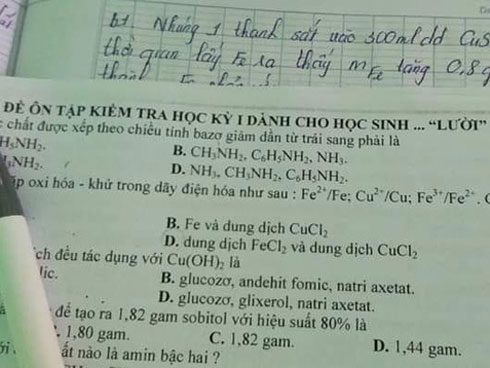 b1 Nhúng 1 thanh sắt vào 300ml dd CuS
thời gian lấy Fe ra thấy m Fe tăng 0,8g
ĐỀ ÔN TẬP KIỂM TRA HỌC KỲ I DÀNH CHO HỌC SINH ... “LƯỜI”
chất được xếp theo chiều tính bazơ giảm dần từ trái sang phải là
H₃NH₂.
B. CH₃NH₂, C₆H₅NH₂, NH₃.
NH₂.
D. NH₃, CH₃NH₂, C₆H₅NH₂.
ặp oxi hóa - khử trong dãy điện hóa như sau : Fe²⁺/Fe; Cu²⁺/Cu; Fe³⁺/Fe²⁺.
B. Fe và dung dịch CuCl₂
D. dung dịch FeCl₂ và dung dịch CuCl₂
ịch đều tác dụng với Cu(OH)₂ là
lic.
B. glucozơ, andehit fomic, natri axetat.
D. glucozơ, glixerol, natri axetat.
để tạo ra 1,82 gam sobitol với hiệu suất 80% là
1,80 gam.
C. 1,82 gam.
D. 1,44 gam.
ất nào là amin bậc hai ?